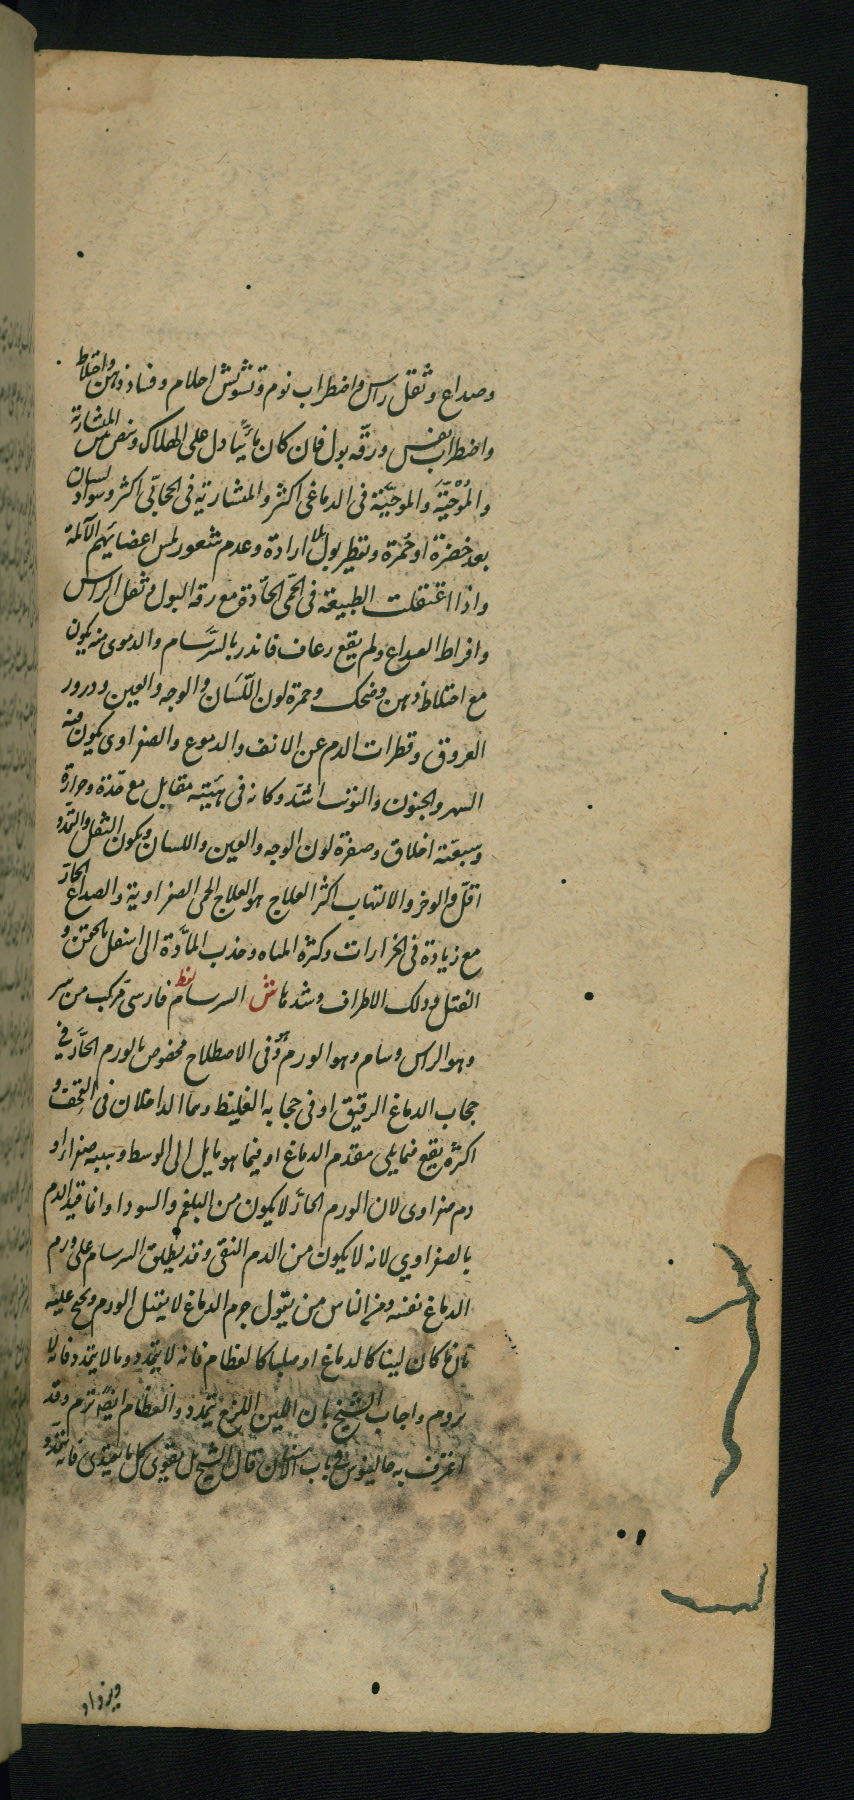 وصداع وثقل راس واضطراب نوم وتشوش احلام وفساد ذهن واختلاط
واضطراب نفس ورقه بول فان كان مائيا دل على الهلاك ونبض المنشارية
والموجية في الدماغي اكثر والمنشارية في الحجابي اكثر وسواد لسان
بعد خضرة او حمرة وتقطير بول بلا ارادة وعدم شعور لمس اعضايهم الآلمة
واذا اعتقلت الطبيعة في الحمى الحادة مع رقه البول وثقل الراس
وافراط الصداع ولم يقع رعاف فانذر بالسرسام والدموى منه يكون
مع اختلاط ذهن وضحك وحمرة لون اللسان والوجه والعين ودرور
العروق وقطرات الدم عن الانف والدموع والصفراوى يكون فيه
السهر والجنون والتوثب اشد وكانه فى هيئته مقابل مع حدة وحرارة
وسبعته اخلاق وصفرة لون الوجه والعين واللسان ويكون الثقل والتمدد
اقل والوخز والالتهاب اكثر العلاج هو العلاج الحمى الصفراوية والصداع الحار
مع زيادة فى الحرارات وكثرة المياه وجذب المادة الى اسفل بالحقن و
الفتل ودلك الاطراف وشدها ش السرسام لفظ فارسى مركب من سر
وهو الراس وسام وهو الورم وهو فى الاصطلاح مخصوص بالورم الحار في
حجاب الدماغ الرقيق او فى حجابه الغليظ وهما الداخلان فى القحف و
اكثره يقع فيما يلى مقدم الدماغ او فيما هو مايل الى الوسط وسببه صفرا او
دم صفراوى لان الورم الحار لا يكون من البلغم والسودا وانما قيد الدم
بالصفراوي لانه لا يكون من الدم النقى وقد يطلق السرسام على ورم
الدماغ نفسه ومن الناس من يقول جرم الدماغ لا يقبل الورم ويحتج عليه
بان ما كان لينا كالدماغ او صلبا كالعظام فانه لا يتمدد وما لا يتمدد فانه لا
يرم واجاب الشيخ بان اللين اللزج يتمدد والعظام ايضا ترم وقد
اعترف به جالينوس في باب الاسنان قال الشيخ بل نقول كل ما يغتذى فانه يتمدد
ويزداد